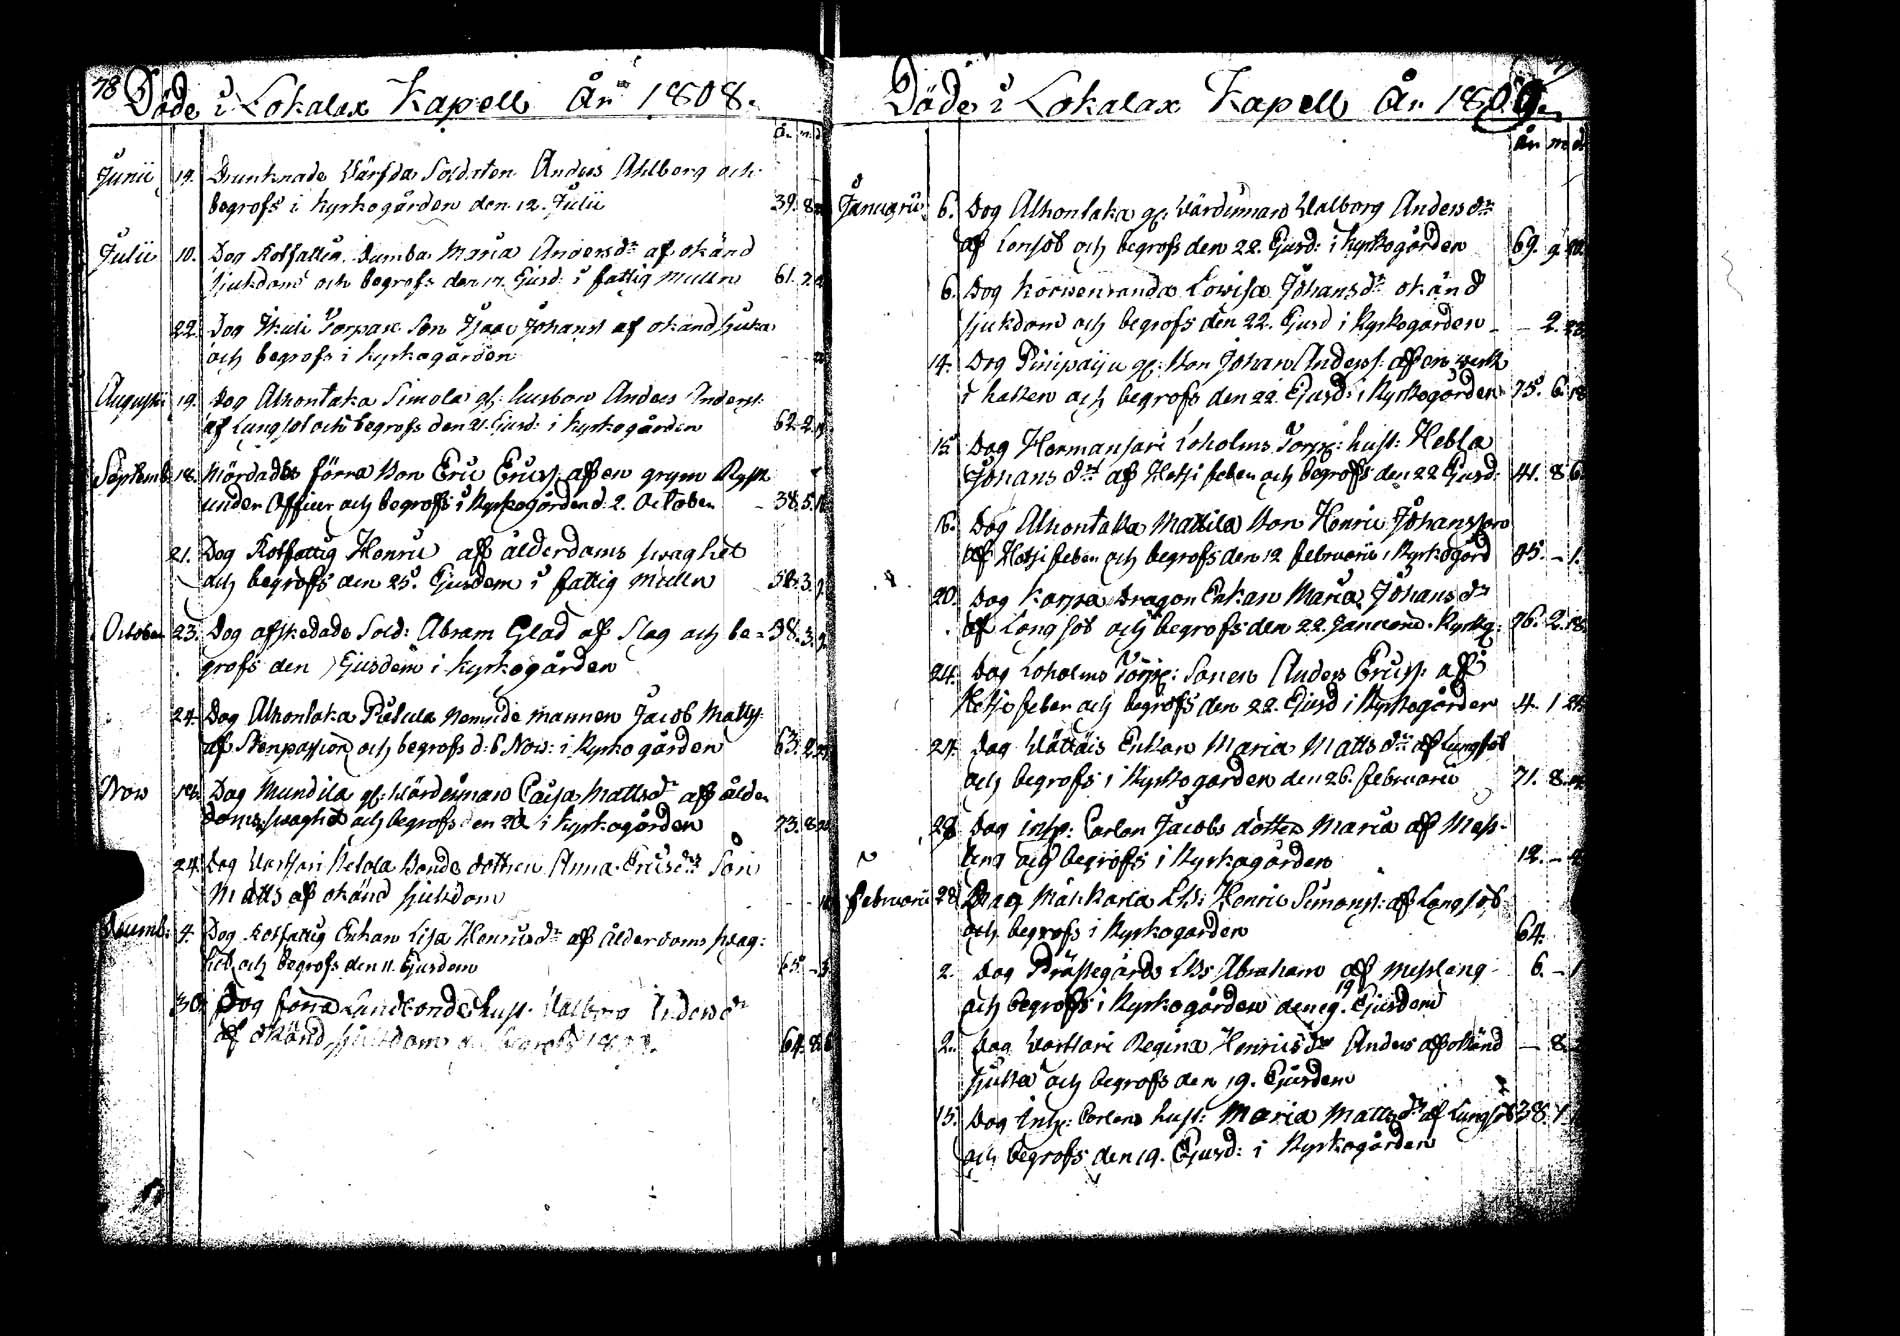 78 Döde i Lokalax Kapell År 1808.
år. m. d
Junii 19. Drunknade Värfda Soldaten Anders Ahlborg och
begrofs i kyrkogården den 12. Julii 39. 8
Julii 10. Dog Rotfattig Maria Andersdr af okänd
sjukdom och begrofs den 17. Ejusd: i fattig mullen 61. 7.
22. Dog Torpare Son Isaac Johans af okänd sjuka
och begrofs i kyrkogården
Augusti 19. Dog Alhontaka Simola gl: husbon Anders Anderss:
af Lungsot och begrofs den 21. Ejusd: i kyrkogården 62. 2.
Septemb 18. Mördades förra Bon Eric Ericss. af en grym Rysk
under Officer och begrofs i Kyrkogården d. 2. October 38. 5.
21. Dog Rotfattig Henric af ålderdoms swaghet
och begrofs den 25. Ejusdem i fattig mullen 58. 3. 9
October 23. Dog afskedade Sold: Abram Glad af Slag och be= 38. 3. 9.
grofs den Ejusdem i kyrkogården
24. Dog Alhontaka Pietila Nemnde mannen Jacob Matss:
af Stenpassion och begrofs d: 6 Nov: i Kyrkogården 63. 2.
Nov Dog Mundila gl: Wärdinnan Caisa Mattsdr af ålder
doms swaghet och begrofs den i kyrkogården 73. 8
24. Dog Ketola Bonde dottren Anna Ericsdrs Son
Matts af okänd sjukdom
Decemb: 4. Dog Rotfattig Enkan Lisa Henricsdr af ålderdoms swag:
het och begrofs den 11. Ejusdem 65. -
30. Dog förra Landbonde hust. Walborg Andersdr
af okänd sjukdom och begrofs 64. 8
Döde i Lokalax Kapell År 1809.
år m d
Januarii 6. Dog Alhontaka gl. Wärdinnan Walborg Andersdr
af Lonsot och begrofs den 22. Ejusd: i kyrkogården 69. 9.
6. Dog Korwenranda Lowisa Johansdr okänd
sjukdom och begrofs den 22. Ejusd i Kyrkogården - - 2.
14. Dog Pinipaiju gl: Bon Johan Anderss: af en werk
i halsen och begrofs den 22. Ejusd: i Kyrkogården 75. 6. 18
15. Dog Hermansari Loholms Torp: hust: Hebla
Johansdr af Hetsi feber och begrofs den 22 Ejusd: 41. 8 6
16. Dog Alhontaka Mattila Bon Henric Johansson
af Hetsi feber och begrofs den 12 februarii i Kyrkogård - 1.
20. Dog Karpa Dragon Enkan Maria Johansdr
af Longsot och begrofs den 22. Januarii. Kyrkg: 76. 2. 18
24. Dog Loholms Torp: Sonen Anders Ericss. af
Hetsi feber och begrofs den 22. Ejusd i Kyrkogården 4. 1
24. Dog Wättäis Enkan Maria Mattsdr af Lungsot
och begrofs i Kyrkogården den 26. februarii 71. 8.
28 Dog inhs: Carlon Jacobs dotter Maria af Mess-
leng och begrofs i Kyrkogården 12. -
februarii 28 Dog Henric Simonss: af Longsot
och begrofs i Kyrkogården 64.
2. Dog Prästegårds Abraham af messleng 6. - 1
och begrofs i Kyrkogården den 19. Ejusdem
2. Dog Wartsari Regina Henricsdr Anders af okänd - 8.
sjuka och begrofs den 19. Ejusdem
15. Dog inhs: Carlens hust: Maria Mattsdr af Lungsot 38. 1
och begrofs den 19. Ejusd: i Kyrkogården